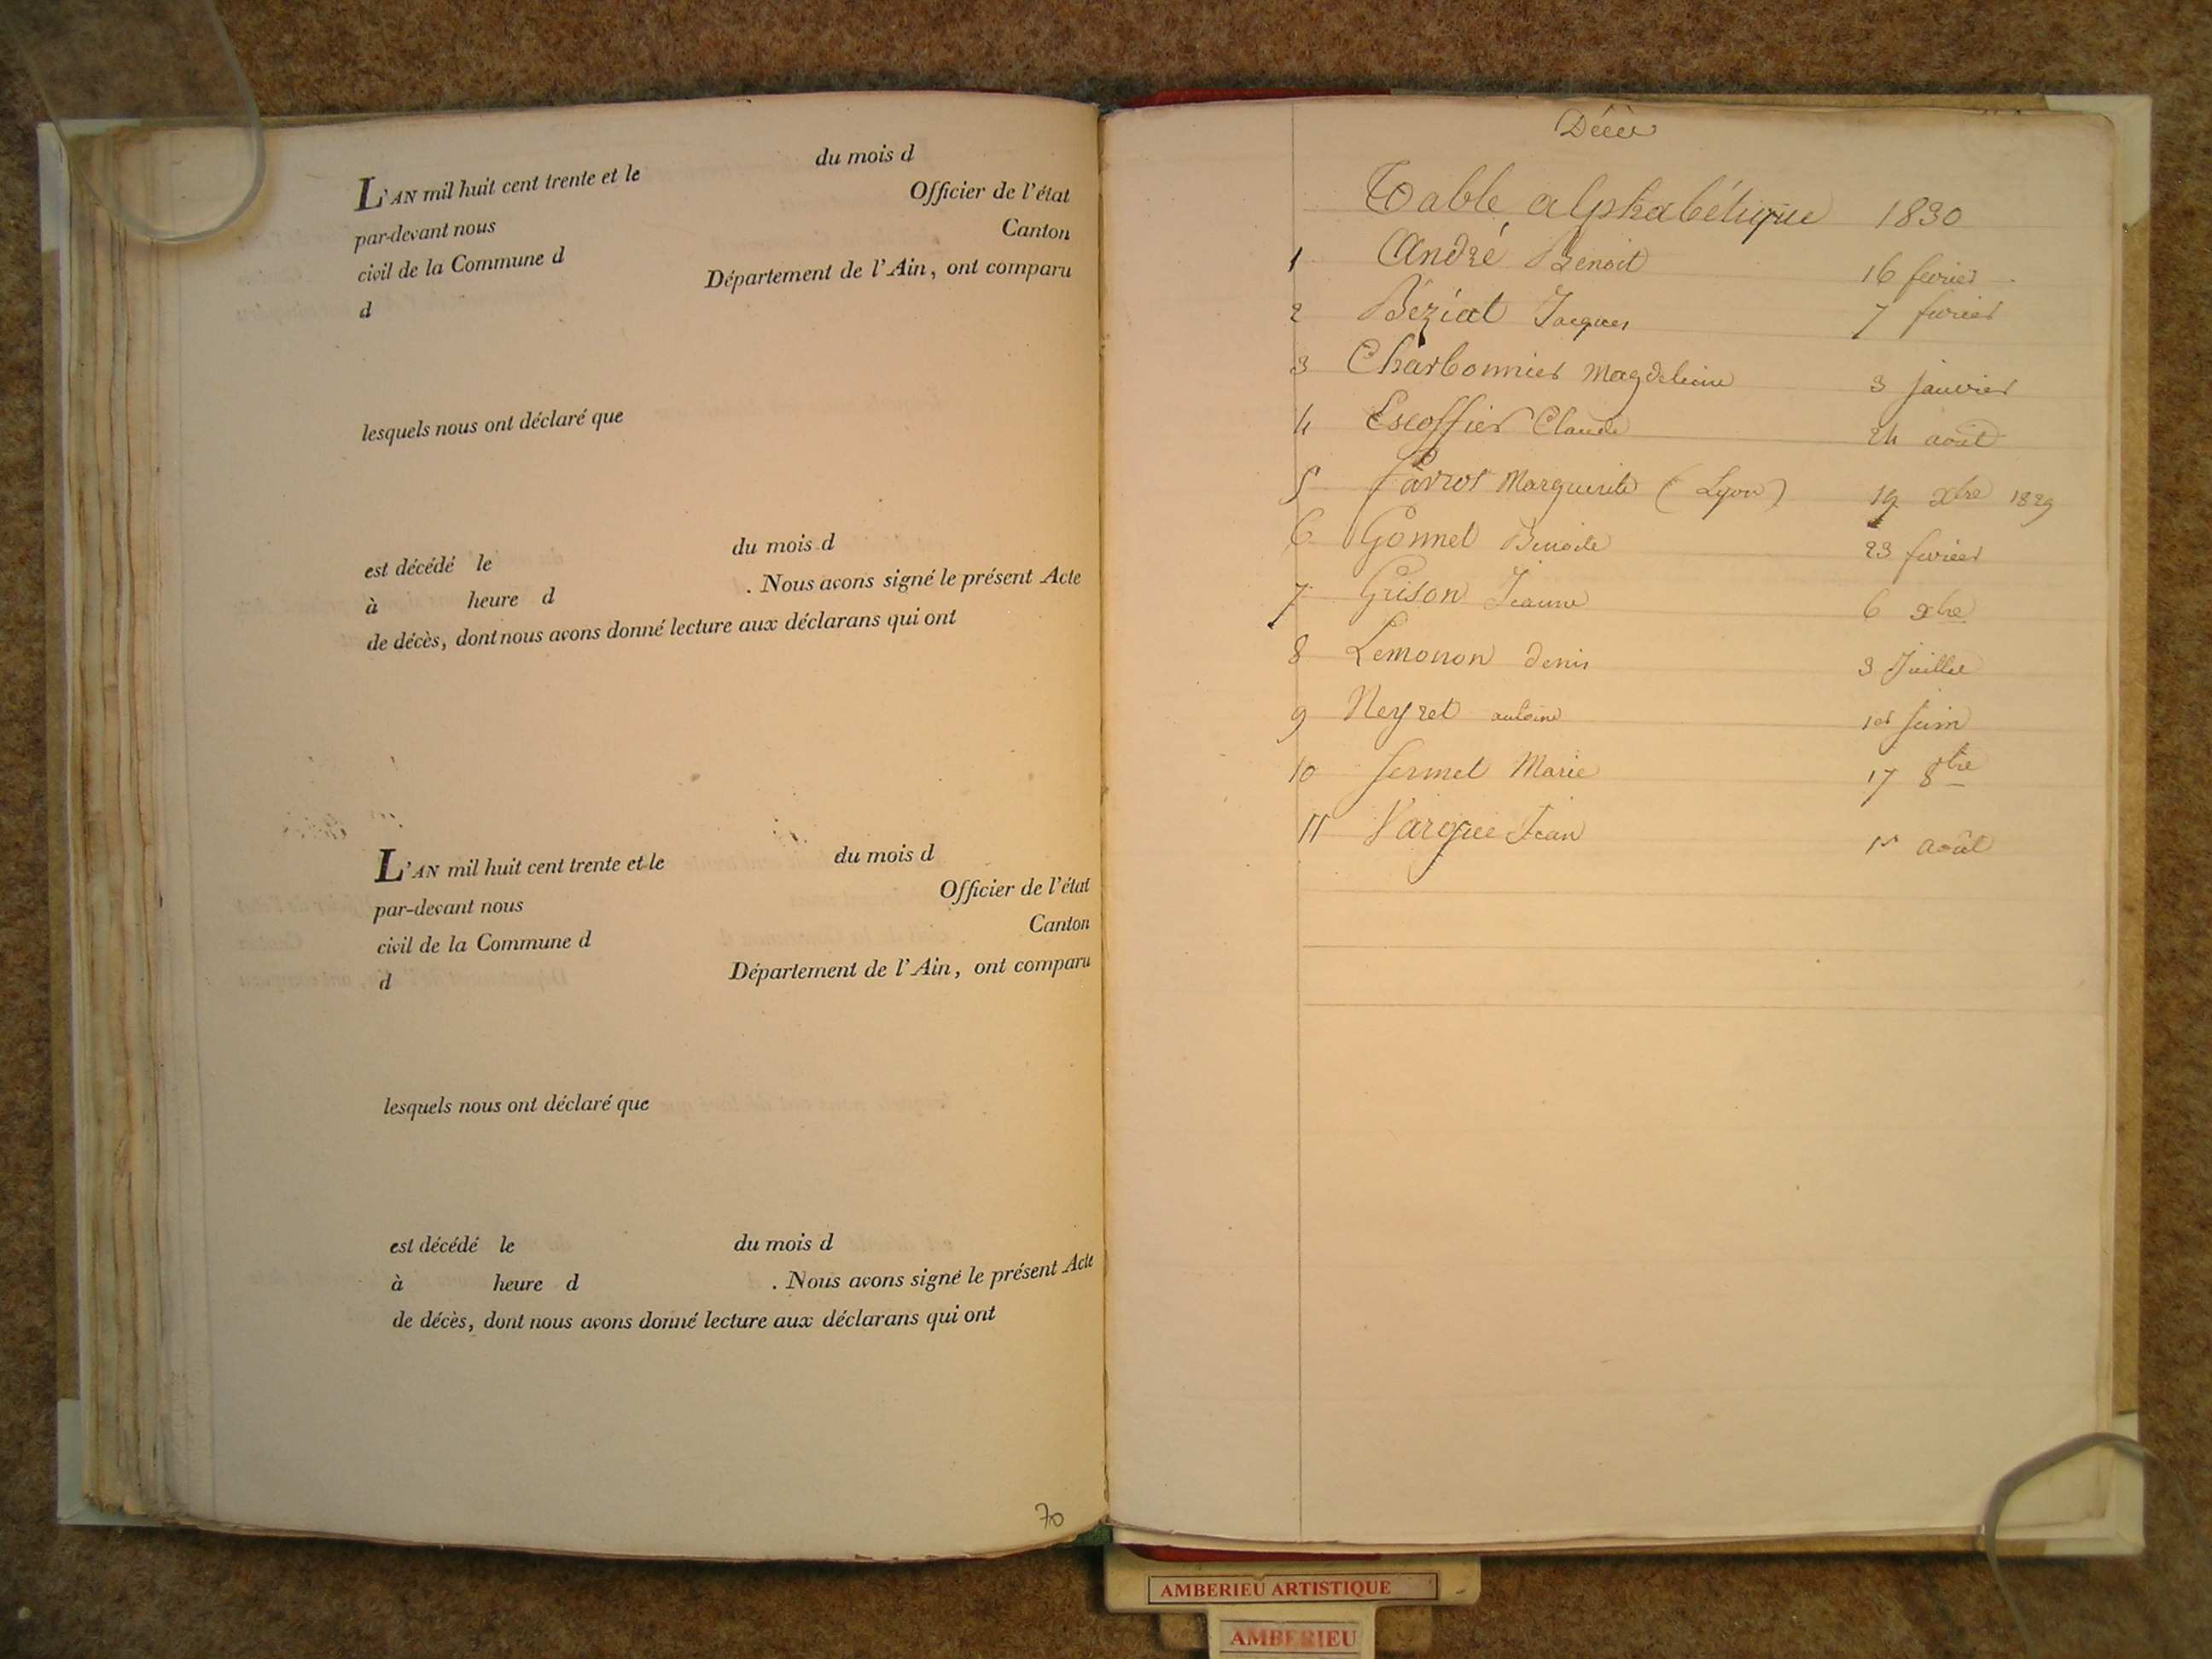 du mois d
L'AN mil huit cent trente et le
Officier de l'état
par-devant nous
Canton
civil de la Commune d
Département de l'Ain, ont comparu
d
lesquels nous ont déclaré que
est décédé le du mois d
à heure d . Nous avons signé le présent Acte
de décès, dont nous avons donné lecture aux déclarans qui ont
L'AN mil huit cent trente et le du mois d
par-devant nous Officier de l'état
civil de la Commune d Canton
d Département de l'Ain, ont comparu
lesquels nous ont déclaré que
est décédé le du mois d
à heure d . Nous avons signé le présent Acte
de décès, dont nous avons donné lecture aux déclarans qui ont
70
Décès
Table alphabétique 1830
1 André Benoit 16 fevrier
2 Béziat Jacques 7 fevrier
3 Charbonnier Magdeleine 3 janvier
4 Escoffier Claude 24 août
5 Marguerite (Lyon) 19 xbre 1829
6 Gonnet Benoite 23 fevrier
7 Grison Jeanne 6 xbre
8 Lemonon denis 3 Juillet
9 Neyret antoine 1er Juin
10 Sermet Marie 17 8bre
11 Jean août
AMBERIEU ARTISTIQUE
AMBERIEU